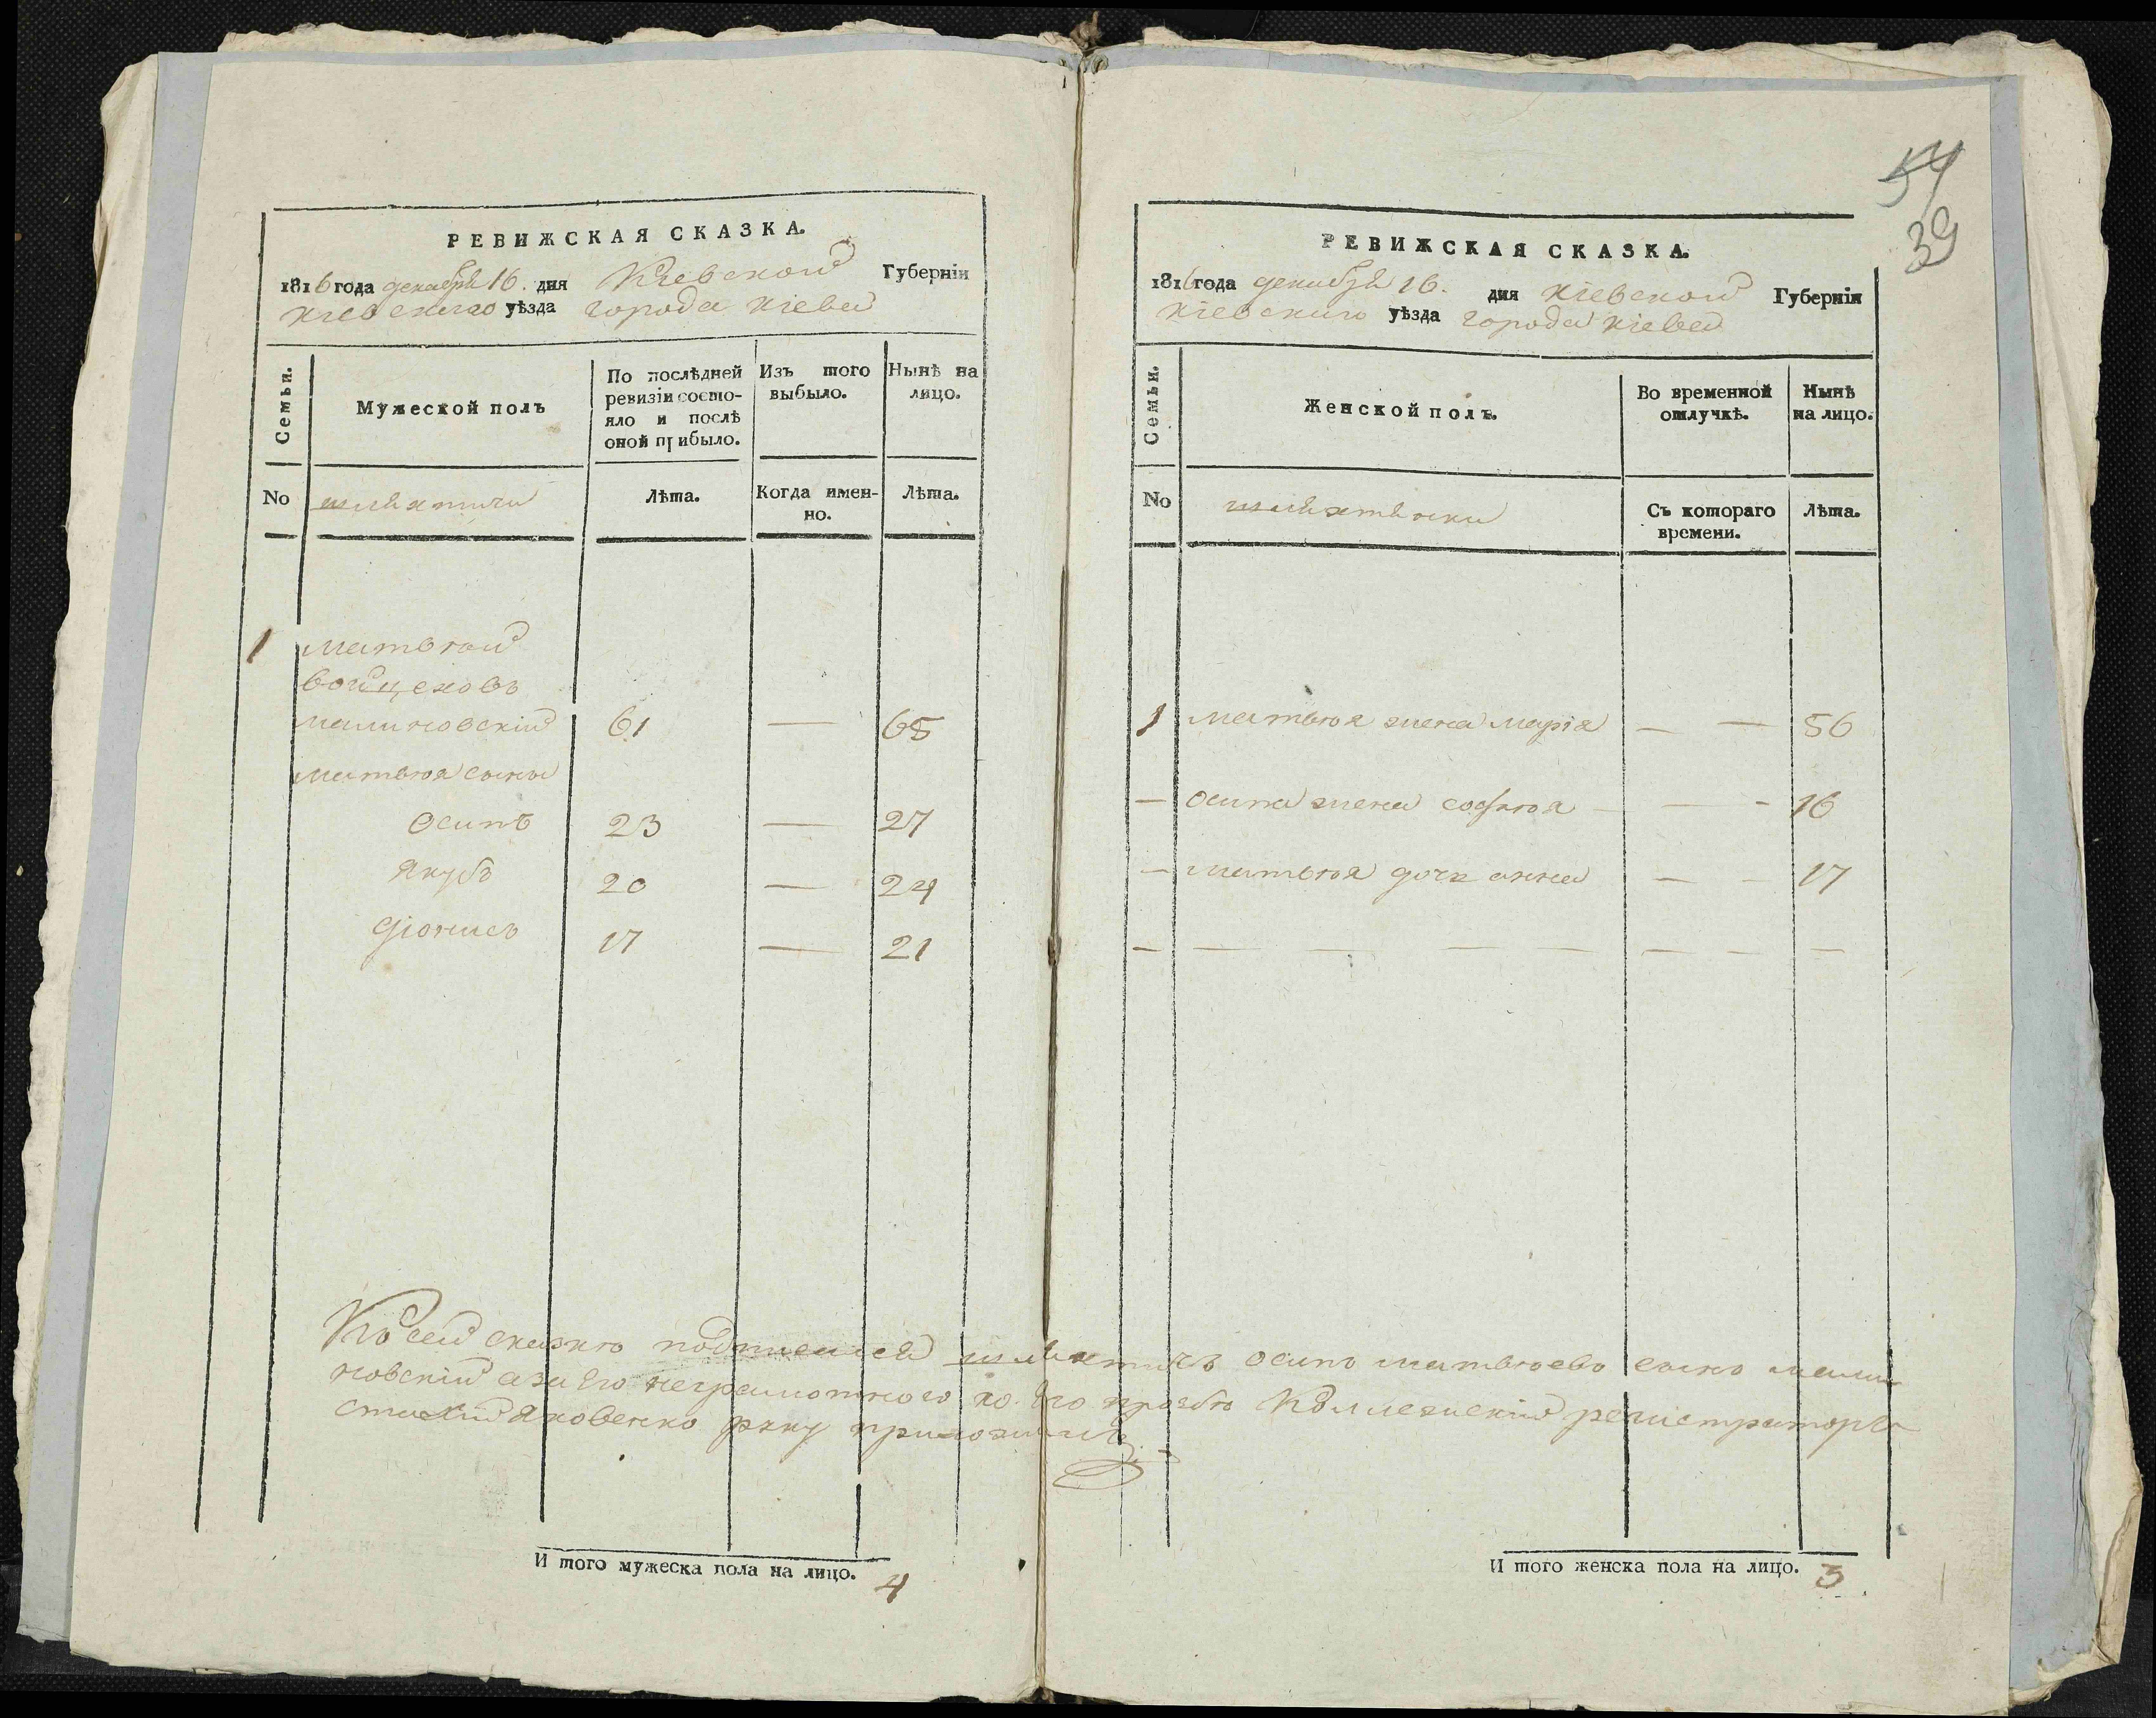 РЕВИЖСКАЯ СКАЗКА.
1816 года декабря 16. дня Кіевской Губерніи
Кіевскаго уѣзда города Кіева
Семьи.
Мужеской полъ
По послѣдней ревизіи состо-
яло и послѣ
оной прибыло.
Изъ того
выбыло.
Нынѣ на
лицо.
No
шляхтичи
Лѣта.
Когда имен-
но.
Лѣта.
1 матвѣй
войцеховъ
малиновскій 61 — 65
матвѣя сыны
осипъ 23 — 27
якубъ 20 — 24
діонисъ 17 — 21
И того мужеска пола на лицо. 4
54
39
РЕВИЖСКАЯ СКАЗКА.
1816 года декабря 16. дня Кіевской Губерніи
Кіевскаго уѣзда города Кіева
Семьи.
Женской полъ.
Во временной
отлучкѣ.
Нынѣ
на лицо.
No
шляхтянки
Съ котораго
времени.
Лѣта.
1 матвѣя жена марія — — 56
— осипа жена софѣя — — - 16
— матвѣя дочь анна — - 17
— — — — — — — —
Къ сей сказкѣ подписался шляхтичъ осипъ матвѣевъ сынъ мали
новскій а за Его неграмотного по Его прозбѣ Коллежскій регистраторъ
Яковенко руку приложилъ
И того женска пола на лицо. 3